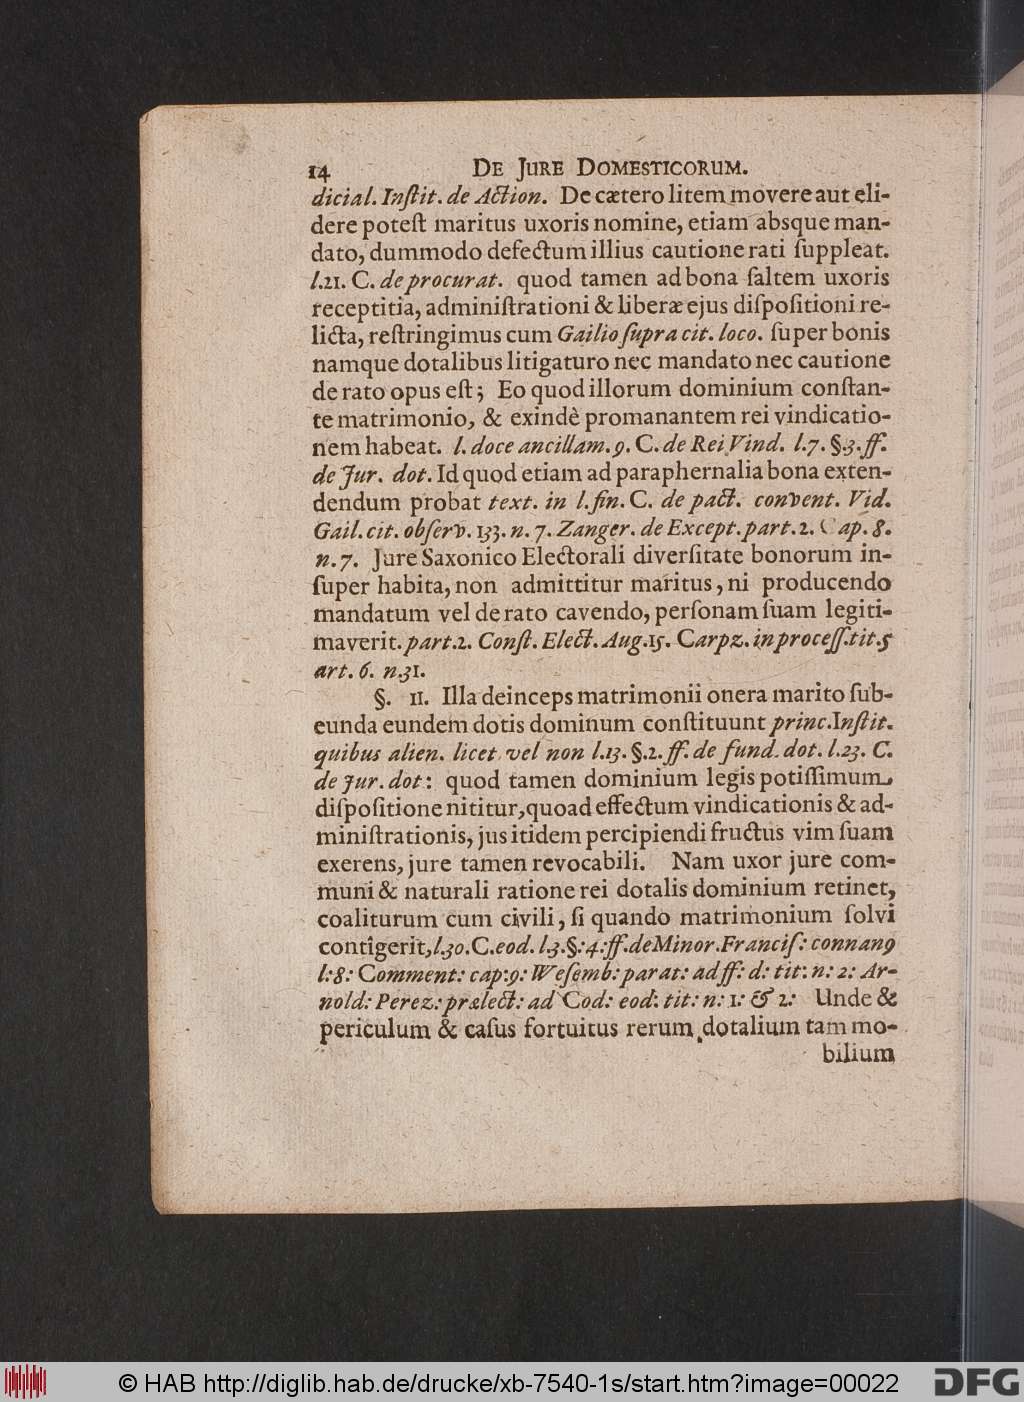 14 DE JURE DOMESTICORUM.
dicial. Inſtit. de Action. De cætero litem movere aut eli-
dere poteſt maritus uxoris nomine, etiam absque man-
dato, dummodo defectum illius cautione rati ſuppleat.
l.21. C. de procurat. quod tamen ad bona ſaltem uxoris
receptitia, adminiſtrationi & liberæ ejus diſpoſitioni re-
licta, reſtringimus cum Gailio ſupra cit. loco. ſuper bonis
namque dotalibus litigaturo nec mandato nec cautione
de rato opus eſt; Eo quod illorum dominium conſtan-
te matrimonio, & exindè promanantem rei vindicatio-
nem habeat. l. doce ancillam. 9. C. de Rei Vind. l.7. §.3. ff.
de Jur. dot. Id quod etiam ad paraphernalia bona exten-
dendum probat text. in l. fin. C. de pact. convent. Vid.
Gail. cit. obſerv. 133. n. 7. Zanger. de Except. part. 2. Cap. 8.
n. 7. Jure Saxonico Electorali diverſitate bonorum in-
ſuper habita, non admittitur maritus, ni producendo
mandatum vel de rato cavendo, perſonam ſuam legiti-
maverit. part. 2. Conſt. Elect. Aug. 15. Carpz. in proceſſ. tit. 5
art. 6. n. 31.
§. 11. Illa deinceps matrimonii onera marito ſub-
eunda eundem dotis dominum conſtituunt princ. Inſtit.
quibus alien. licet vel non l.13. §.2. ff. de fund. dot. l.23. C.
de Jur. dot: quod tamen dominium legis potiſſimum
diſpoſitione nititur, quoad effectum vindicationis & ad-
miniſtrationis, jus itidem percipiendi fructus vim ſuam
exerens, jure tamen revocabili. Nam uxor jure com-
muni & naturali ratione rei dotalis dominium retinet,
coaliturum cum civili, ſi quando matrimonium ſolvi
contigerit, l.30. C. eod. l.3. §:4: ff. de Minor. Franciſ: connan9
l:8: Comment: cap:9: Weſemb: parat: ad ff: d: tit: n: 2: Ar-
nold: Perez: prælect: ad Cod: eod: tit: n: 1: & 2: Unde &
periculum & caſus fortuitus rerum dotalium tam mo-
bilium
© HAB http://diglib.hab.de/drucke/xb-7540-1s/start.htm?image=00022
DFG